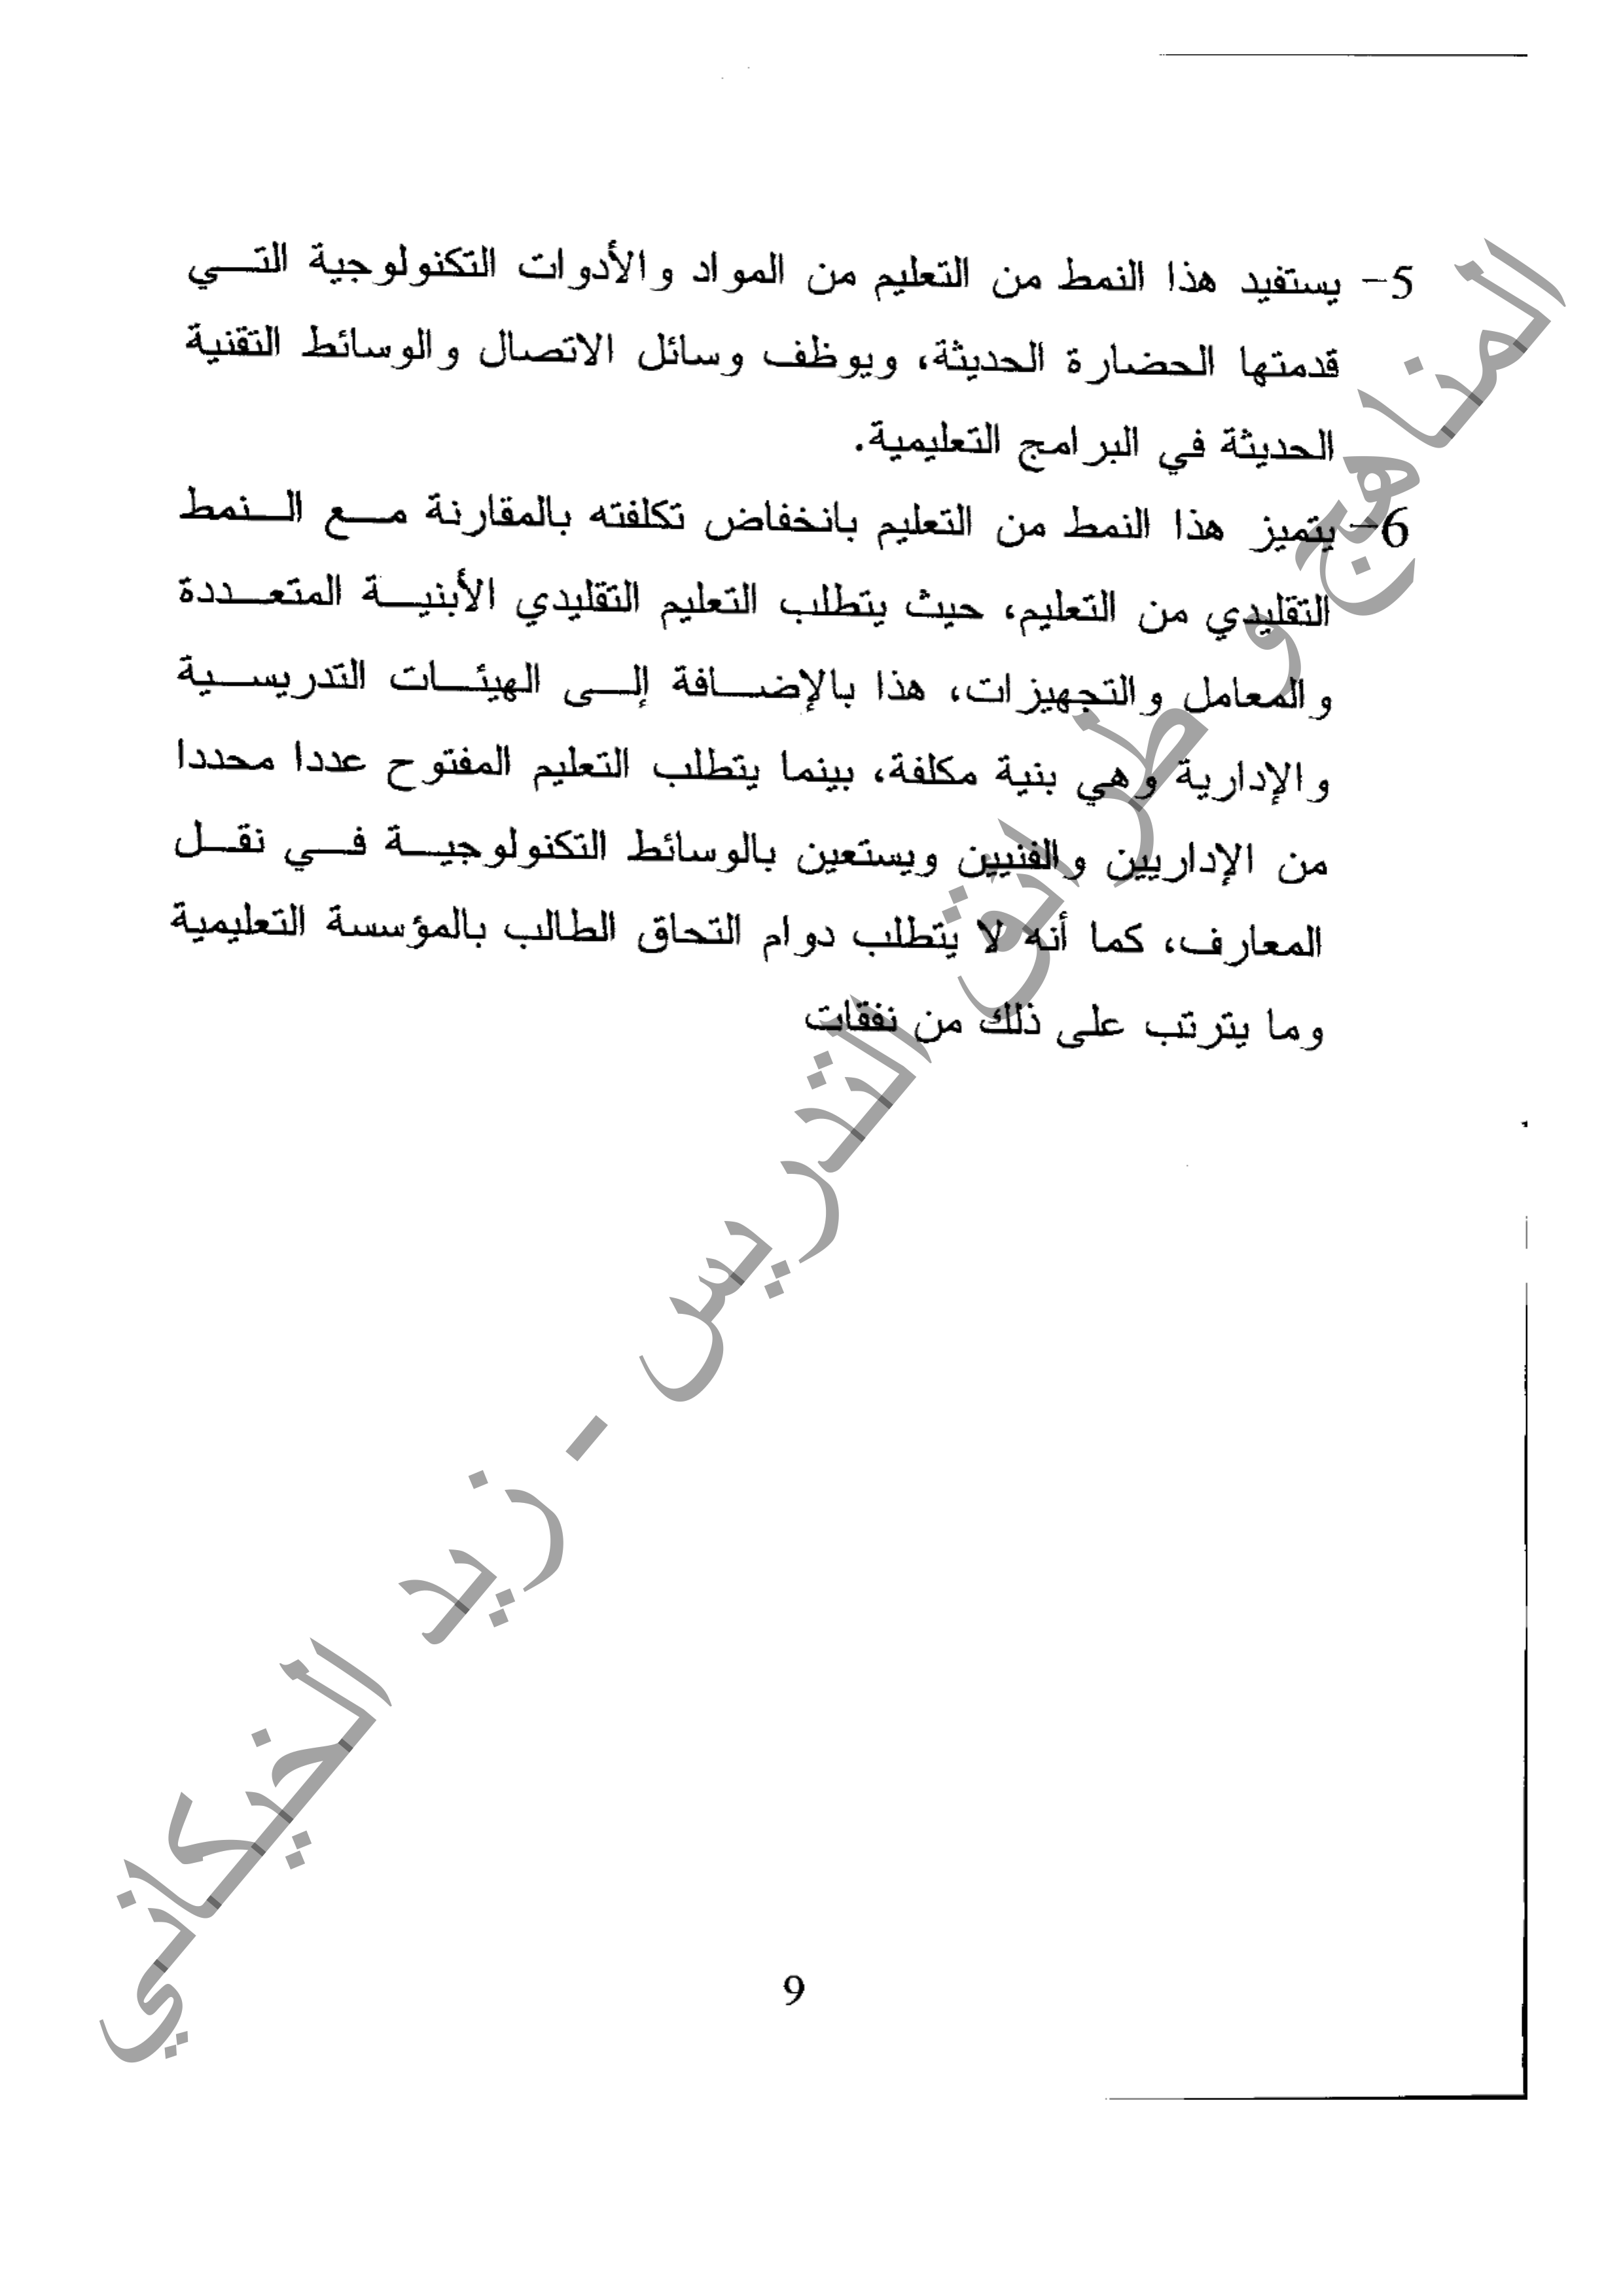 5- يستفيد هذا النمط من التعليم من المواد والأدوات التكنولوجية التي
قدمتها الحضارة الحديثة، ويوظف وسائل الاتصال والوسائط التقنية
الحديثة في البرامج التعليمية.
6- يتميز هذا النمط من التعليم بانخفاض تكلفته بالمقارنة مع النمط
التقليدي من التعليم، حيث يتطلب التعليم التقليدي الأبنية المتعددة
والمعامل والتجهيزات، هذا بالإضافة إلى الهيئات التدريسية
والإدارية وهي بنية مكلفة، بينما يتطلب التعليم المفتوح عددا محددا
من الإداريين والفنيين ويستعين بالوسائط التكنولوجية في نقل
المعارف، كما أنه لا يتطلب دوام التحاق الطالب بالمؤسسة التعليمية
وما يترتب على ذلك من نفقات
المناهج وطرائق التدريس - زيد الخيكاني
9